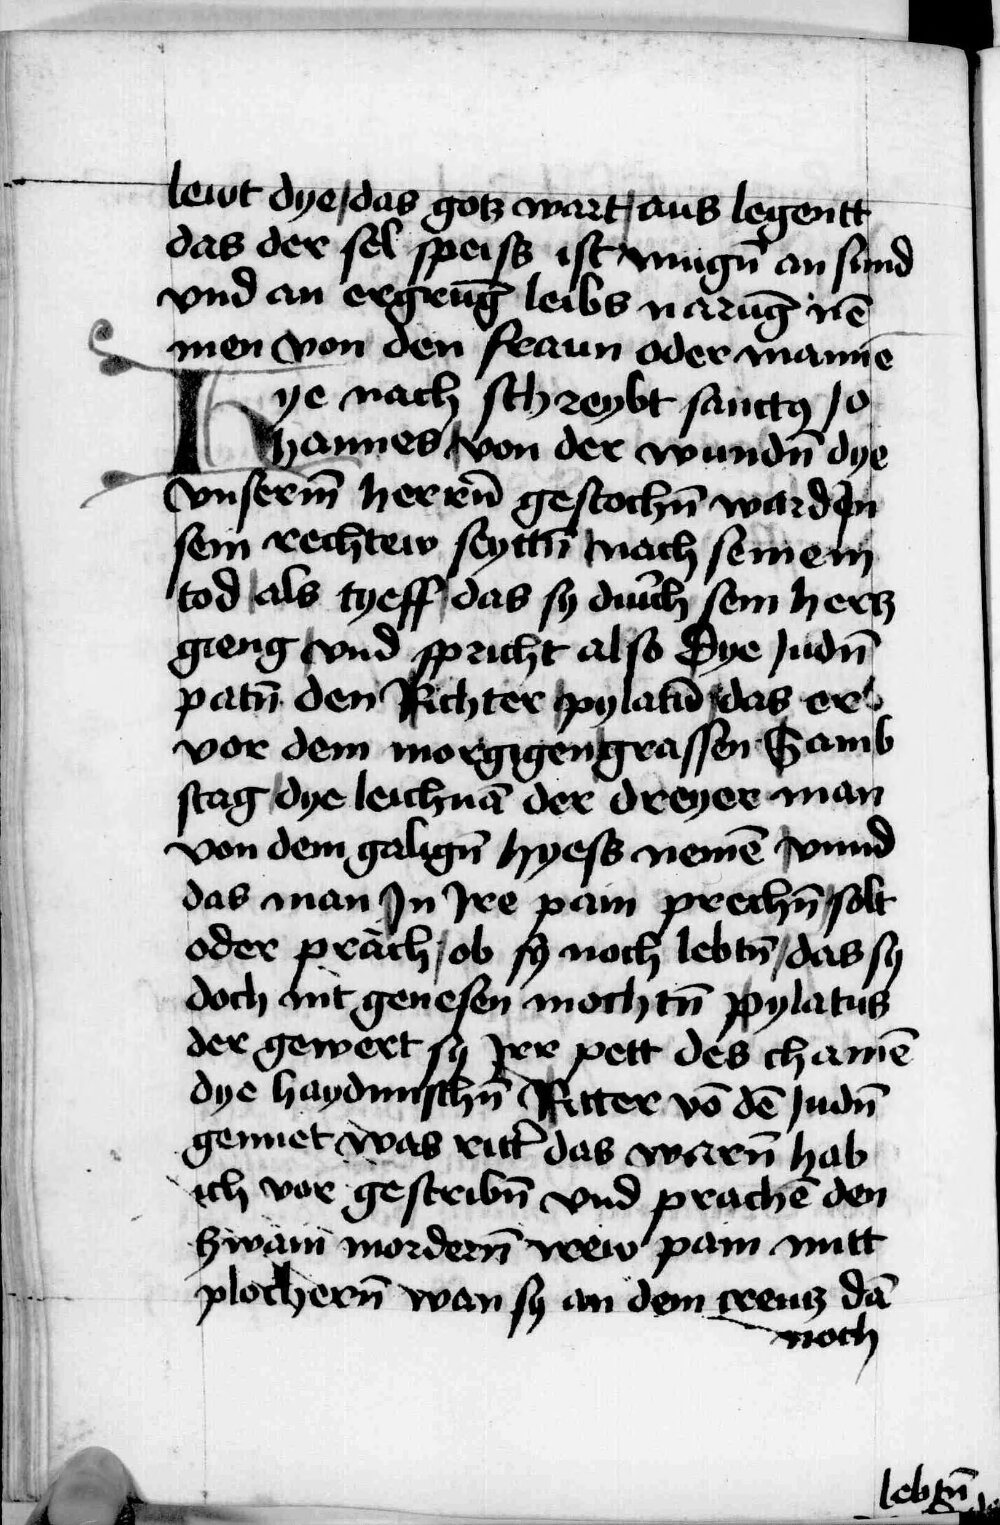 lewt dye / das gotz wart / aus legentt
das der sel speiss ist mugn̄ an sund
vnd an ergrūg leibs narūg nē
men von den fraun oder mannē
Hye nach schreybt sanctꝯ Jo
hannes / von der wundn̄ dye
vnserm̄ herrn̄ gestochn̄ ward in
sein rechtew seyttn̄ nach seinem
tod / als tyeff / das sy durch sein hertz
gieng / vnd spricht also Dye Judn̄
patn̄ den Richter pylatū / das er
vor dem morgigen grassen Samb
stag / dye leichnā der dreyer man
von dem galign̄ hyess nemē / vnnd
das man Jn Jre pain prechn̄ solt
oder präch / ob sy noch lebtn̄ / das sy
doch nit genesen mochtn̄ Pylatus
der gewert sy Jrr pett des chamē
dye haydnischn̄ Ritter vō dē Judn̄
gemiet was ritt̄ das warn̄ hab
ich vor gescribn̄ vnd prachē den
zwain mordern̄ irew pain mitt
plochern̄ wan sy an dem creutz dā
noch
lebtn̄